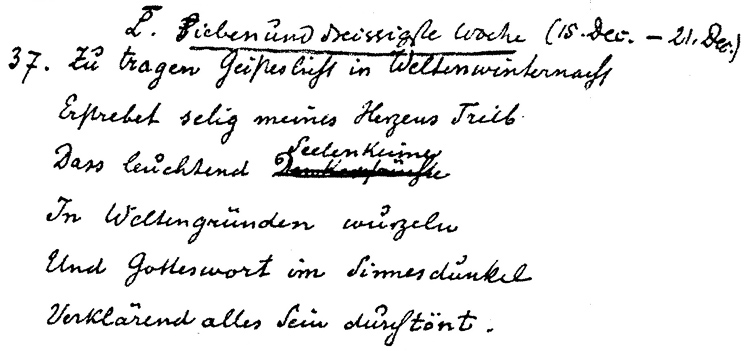 L. Siebenund dreissigste Woche (15. Dec. – 21. Dec.)
37. Zu tragen Geisteslicht in Weltenwinternacht
Erstrebet selig meines Herzens Trieb
Dass leuchtend Seelenkeime
In Weltengründen wurzeln
Und Gotteswort im Sinnesdunkel
Verklärend alles Sein durchtönt.